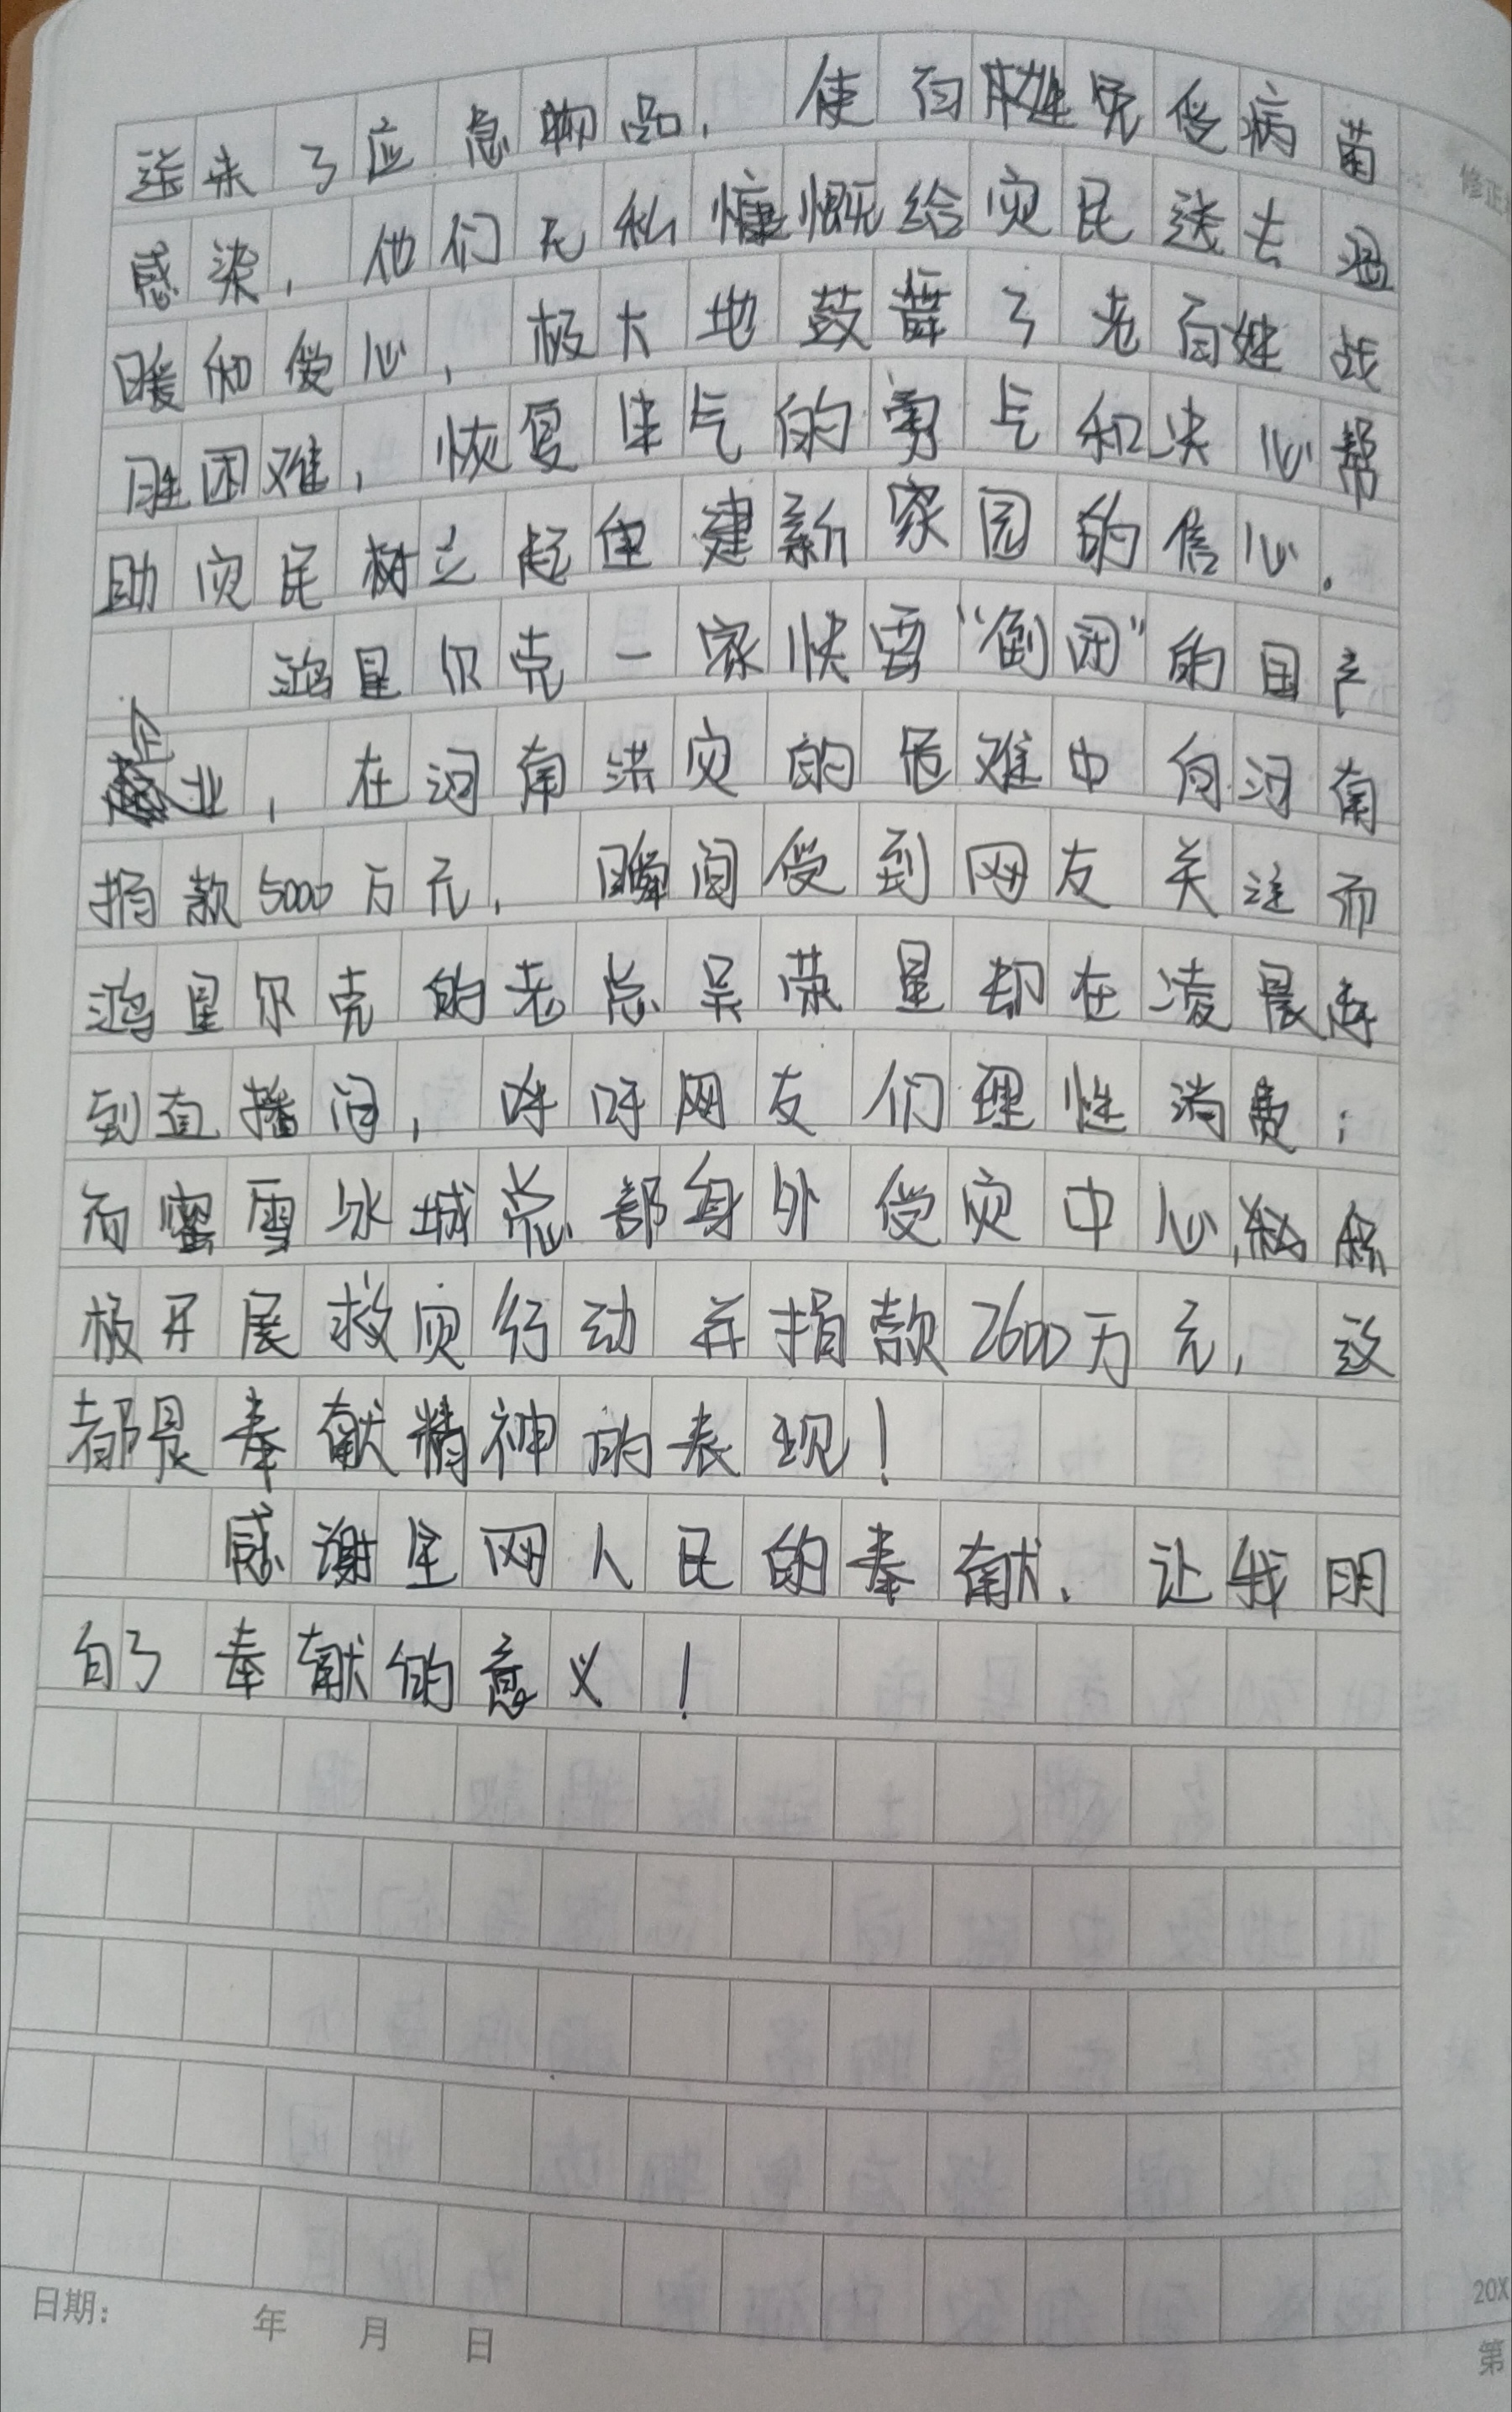 送来了应急物品，使百姓免受病菌
感染，他们无私慷慨给灾民送去温
暖和爱心，极大地鼓舞了老百姓战
胜困难，恢复生气的勇气和决心帮
助灾民树立起重建新家园的信心。
鸿星尔克一家快要“倒闭”的国产
企业，在河南洪灾的危难中向河南
捐款5000万元，瞬间受到网友关注而
鸿星尔克的老总吴荣星却在凌晨赶
到直播间，呼吁网友们理性消费；
而蜜雪冰城总部身处受灾中心，积
极开展救灾行动并捐款2600万元，这
都是奉献精神的表现！
感谢全网人民的奉献，让我明
白了奉献的意义！
日期： 年 月 日
修正
20X
第